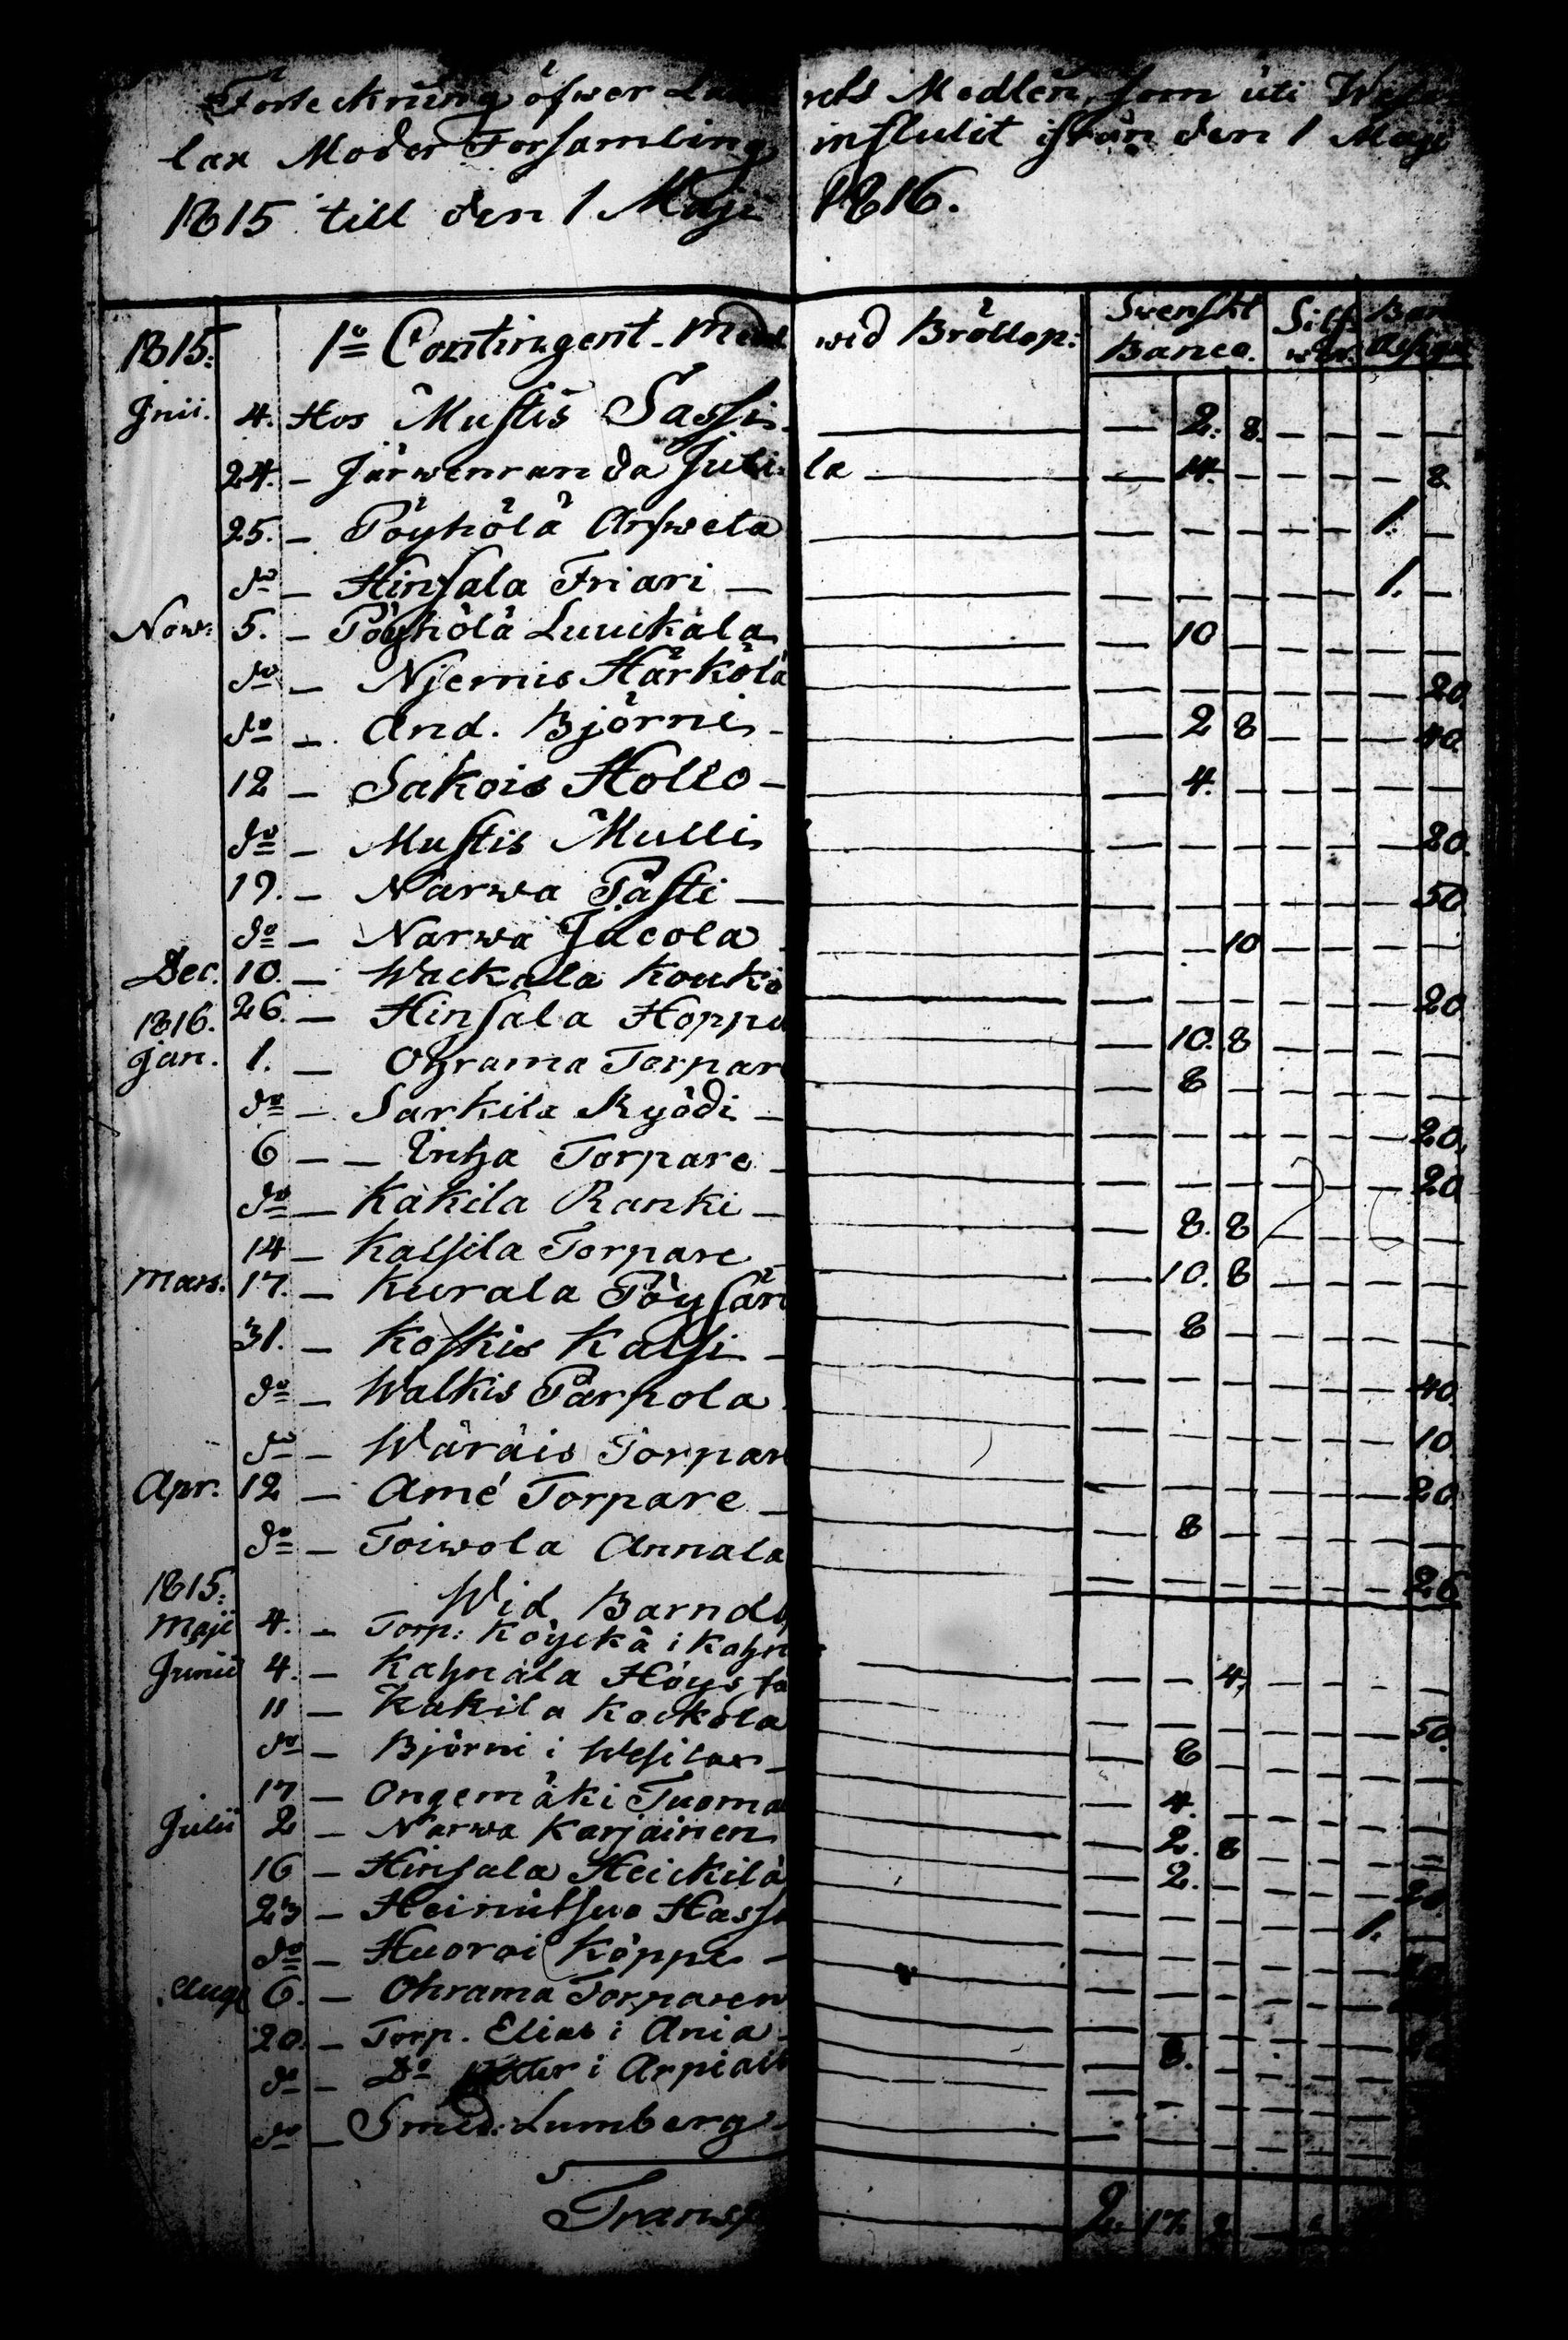 Förteckning öfwer rets Medlen, som uti
lax Moder Församling influtit ifrån den 1 Maji
1815 till den 1 Maji 1816.
1815. 1o Contingent-Med wid Bröllop: Swenskt Banco. Silf. Banc. Assign.
Junii. 4. Hos Mustis Sassi — — 2. 8. — — — —
24. — Järwenranda Juti la — — 14. — — — — 8.
25. — Pöyhölä Answela — — — — — — 1. —
do — Hinsala Friari — — — — — — — 1. —
Now: 5. — Pöyhölä Luuikala — — 10 — — — — —
do — Njemis Härkölä — — — — — — — 20.
do — And. Björni — — 2 8 — — — 40.
12 — Sakois Hollo — — — 4. — — — — —
do — Mustis Mulli — — — — — — — 20.
19. — Narwa Pästi — — — — — — — — 50.
do — Narwa Jacola — — — 10 — — — —
Dec. 10. — Wackala Kouki — — — — — — — 20.
26. — Hinsala Hoppu — — 10. 8 — — — —
1816. Jan. 1. — Ohrama Torpar — — 8 — — — — —
do — Sarkila Kyödi — — — — — — — — 20.
6 — — Inha Torpare — — — — — — — — 20
do — Kakila Ranki — — — 8. 8 — — — —
14 — Kalsila Torpare — — 10. 8 — — — —
Mars. 17. — Kurala Pöysär — — 8 — — — — —
31. — Koskis Kalsi — — — — — — — — 40.
do — Walkis Parpola — — — — — — — 10.
do — Wäräis Torpar — — — — — — — 20.
Apr. 12 — Amé Torpare — — — 8 — — — — —
do — Toiwola Annala — — — — — — — 26.
1815. Wid Barnd
Maji 4. — Torp: Köyckä i Kahn — — — 4. — — — —
Junii 4. — Kahnala Höys — — — — — — — 50.
11 — Kakila Kockola — — 8 — — — — —
do — Björni i Wesilax — — — 4. — — — — —
17 — Ongemäki Tuoma — — 2. 8 — — — —
Julii 2 — Narwa Karjainen — — 2. — — — — 20.
16 — Hinsala Heickilä — — — — — — 1. —
23 — Heinutsuo Hass — — — — — — —
do — Huoroi Köppe — — — — — — — —
Aug. 6. — Ohrama Torparen — — 8. — — — —
20. — Torp. Elias i Ania — — — — — — —
do — Do i Arpiais — — — — — — —
do — Smed: Lumberg
Transp — 2. 17.